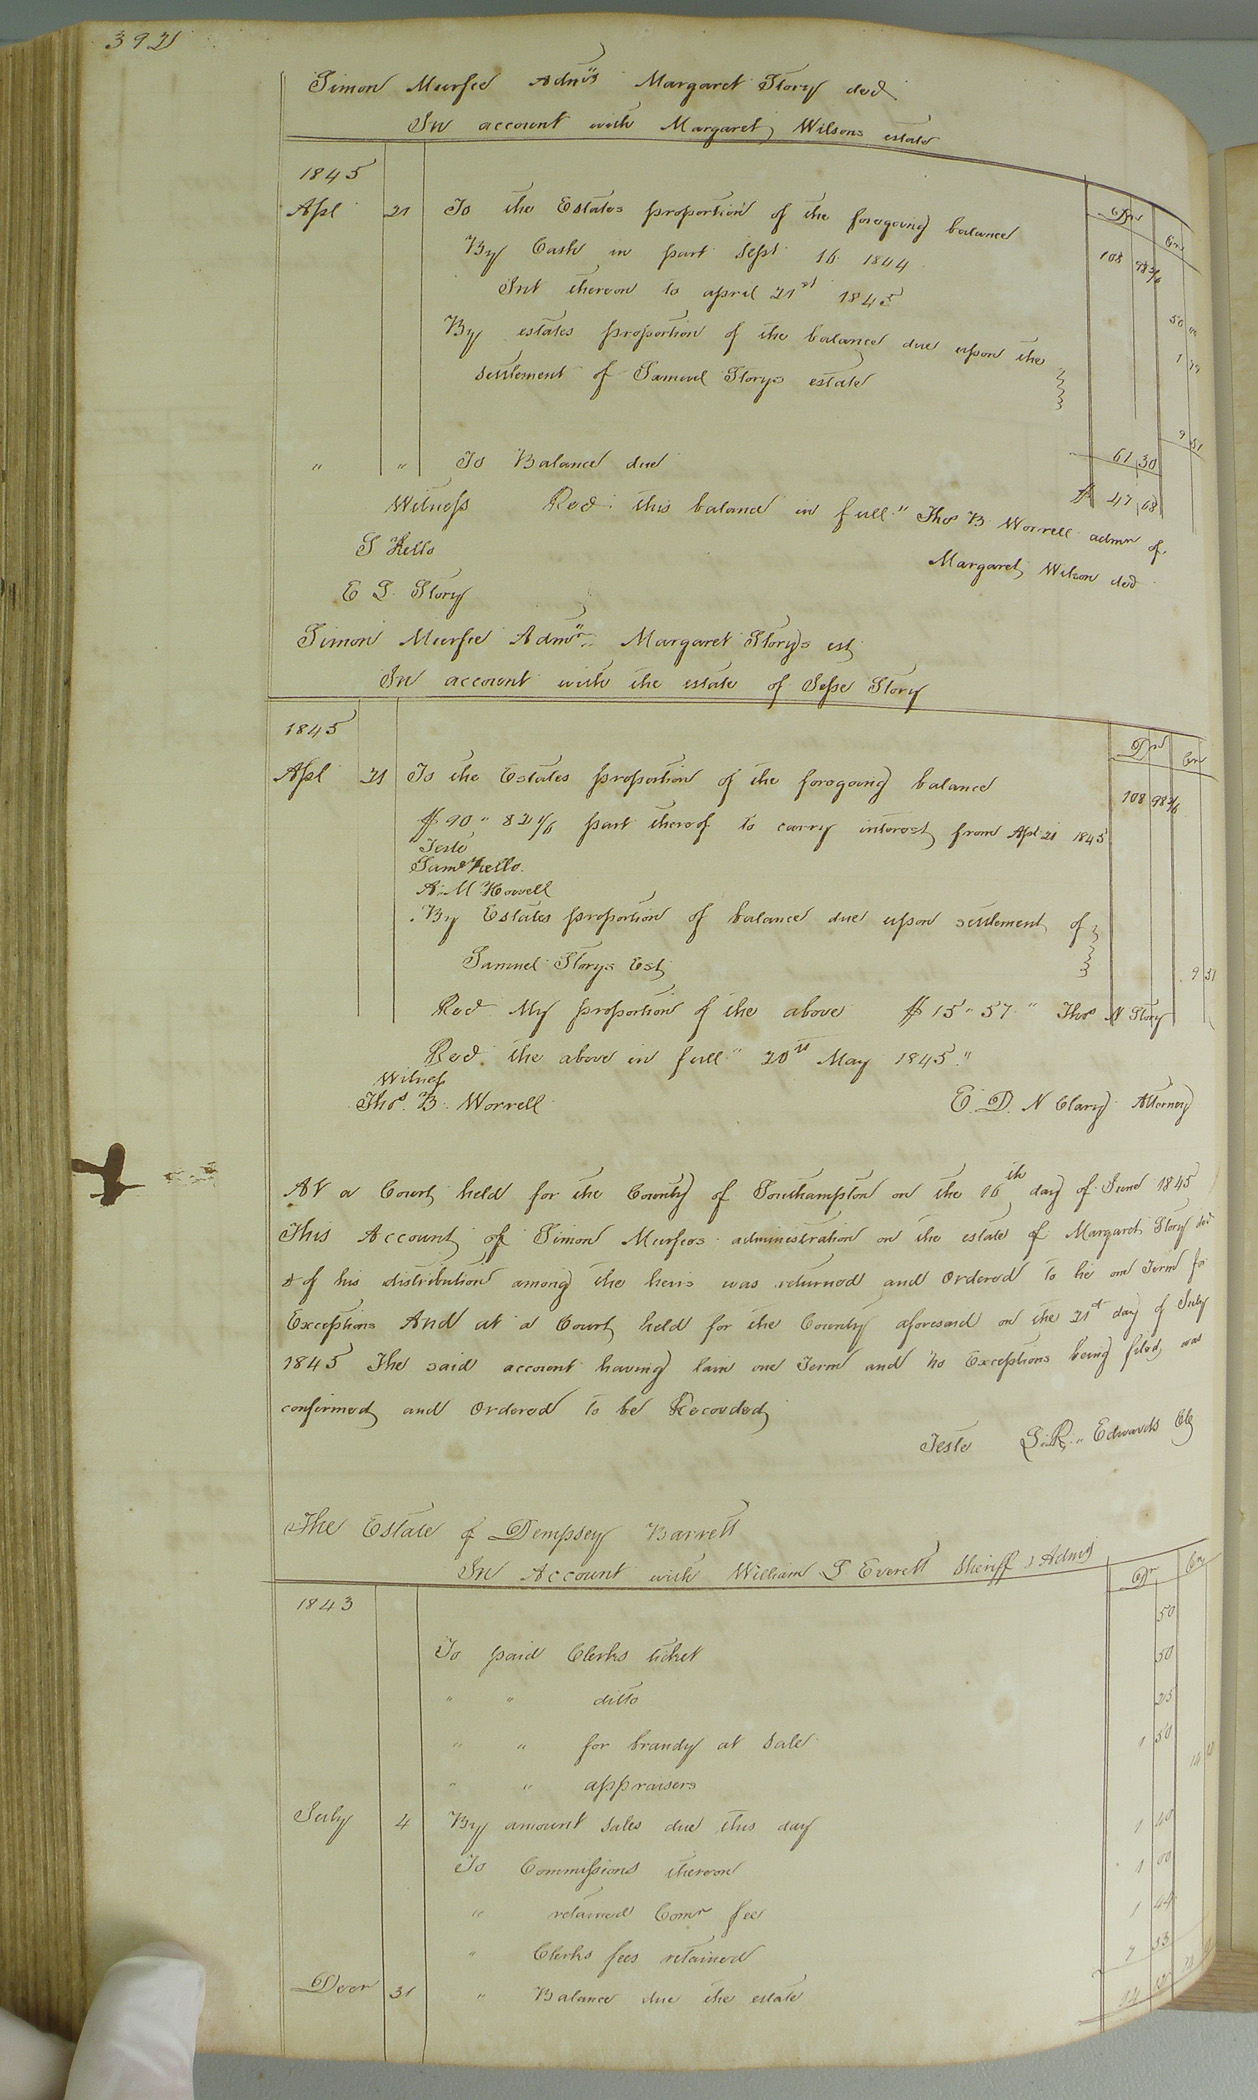 392
Simon Murfee Admr Margaret Story decd
In account with Margaret Wilsons estate
1845
Dr Cr
Apl 21 To the Estates proportion of the foregoing balance 108 98 5/6
By Cash in part Sept 16 1844 50
Int thereon to april 21st 1845 1 79
By estates proportion of the balance due upon the
settlement of Samuel Storys estate 9 51
61 30
" " To Balance due $ 47 68
Witness Recd this balance in full " Thos B Worrell admr of
S Kello Margaret Wilson decd
E S. Story
Simon Murfee Admr Margaret Storys est
In account with the estate of Jesse Story
1845
Dr Cr
Apl 21 To the Estates proportion of the foregoing balance 108 98 5/6
$ 90 " 82 1/6 part thereof to carry interest from Apl 21 1845
Teste
Saml Kello
A. M Howell
By Estates proportion of balance due upon settlement of
Samuel Storys Est 9 51
Recd My proportion of the above $ 15 " 57 " Thos N Story
Recd the above in full " 20th May 1845 "
Witness
Thos. B. Worrell E. D. N Clary Attorney
At a Court held for the County of Southampton on the 16th day of June 1845
This Account of Simon Murfees administration on the estate of Margaret Story decd
& of his distribution among the heirs was returned and Ordered to lie one Term for
Exceptions And at a Court held for the County aforesaid on the 21st day of July
1845 The said account having lain one Term and no Exceptions being filed, was
confirmed and Ordered to be Recorded
Teste L. R. Edwards Clk
The Estate of Dempsey Barrett
In Account with William S Everett Sheriff & Admr
Dr Cr
1843
50
To paid Clerks ticket 50
" " ditto 25
" " for brandy at Sale 1 50
" " appraisers
July 4 By amount Sales due this day
To Commissions thereon 1 40
" retained Comr fee 1 00
" Clerks fees retained 1 44
Decr 31 " Balance due the estate 7 33